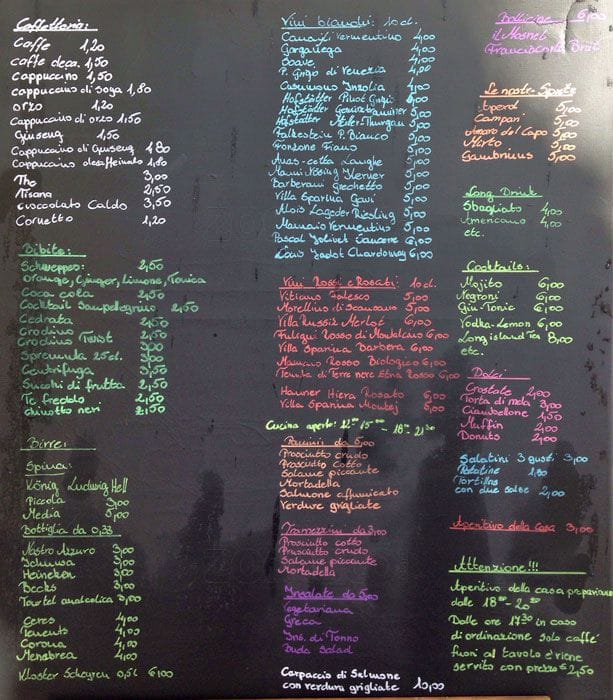 Caffetteria:
Caffe 1,20
caffe deca. 1,50
Cappuccino 1,50
cappuccino di soya 1,80
orzo 1,20
Cappuccino di orzo 1,50
Ginseng 1,50
Cappuccino di Ginseng 1,80
Cappuccino decaffeinato 1,80
The 3,00
Tisana 2,50
cioccolato Caldo 3,50
Cornetto 1,20
Bibite:
Schweppes: 2,50
Orange, Ginger, Limone, Tonica
Coca cola 2,50
Cocktail Sanpellegrino 2,50
Cedrata 2,50
Crodino 2,50
Crodino Twist 3,00
Spremuta 25cl. 3,00
Centrifuga 3,50
Succhi di frutta 2,50
Te freddo 2,50
chinotto neri 2,50
Birre:
Spina:
König Ludwig Hell
Piccola 3,00
Media 5,00
Bottiglia da 0,33
Nastro Azzuro 3,00
Ichnusa 3,00
Heineken 3,00
Becks 3,00
Tourtel analcolica 3,00
Ceres 4,00
Tenents 4,00
Corona 4,00
Menabrea 4,00
Kloster Scheyern 0,5l 6,00
Vini bianchi: 10 cl.
Canayli Vermentino 4,00
Garganega 4,00
Soave 4,00
P. Grigio di Venezia 4,00
Cusumano Inzolia 4,00
Hofstätter Pinot Grigio 5,00
Hofstätter Gewürztraminer 5,00
Hofstätter Müller-Thurgau 5,00
Falkestein P. Bianco 5,00
Fonzone Fiano 5,00
Langhe 5,00
Kerner 5,00
Barberani Grechetto 5,00
Villa Sparina Gavi 5,00
Alois Lageder Riesling 5,00
Vermentino 5,00
Pascal Jolivet Sancerre 6,00
Louis Jadot Chardonnay 6,00
Vini Rossi e Rosati: 10 cl.
Vitiano Falesco 5,00
Morellino di Scansano 5,00
Villa Russiz Merlot 6,00
Fuligni Rosso di Montalcino 6,00
Villa Sparina Barbera 6,00
Rosso Biologico 6,00
Tenuta di Terre nere Etna Rosso 6,00
Hauner Hiera Rosato 6,00
Villa Sparina Montej 5,00
Cucina aperto: 12°° 15°° - 18°° 21³⁰
Panini da 5,00
Prosciutto crudo
Prosciutto cotto
Salame piccante
Mortadella
Salmone affumicato
Verdure grigliate
Tramezzini da 3,00
Prosciutto cotto
Prosciutto crudo
Salame piccante
Mortadella
Insalate da 5,00
Vegetariana
Greca
Ins. di Tonno
Dudu Salad
Carpaccio di Salmone
con verdura grigliate 10,00
Bollicine 6,00
il Mosnel
Franciacorta Brut
Le nostre Spritz
Aperol 5,00
Campari 5,00
Amaro del Capo 5,00
Mirto 5,00
Gambrinus 5,00
Long Drink
Sbagliato 4,00
Americano 4,00
etc.
Cocktails:
Mojito 6,00
Negroni 6,00
Gin-Tonic 6,00
Vodka-Lemon 6,00
Long island Tea 8,00
etc.
Dolci
Crostate 2,00
Torta di mela 3,00
Ciambellone 1,50
Muffin 2,00
Donuts 2,00
Salatini 3 gusti 3,00
Patatine 1,80
Tortillas
con due salse 2,00
Aperitivo della casa 3,00
Attenzione!!!
Aperitivo della casa prepariamo
dalle 18°° - 20³⁰
Dalle ore 17³⁰ in caso
di ordinazione solo caffe'
fuori al tavolo e' viene
servito con prezzo € 2,50